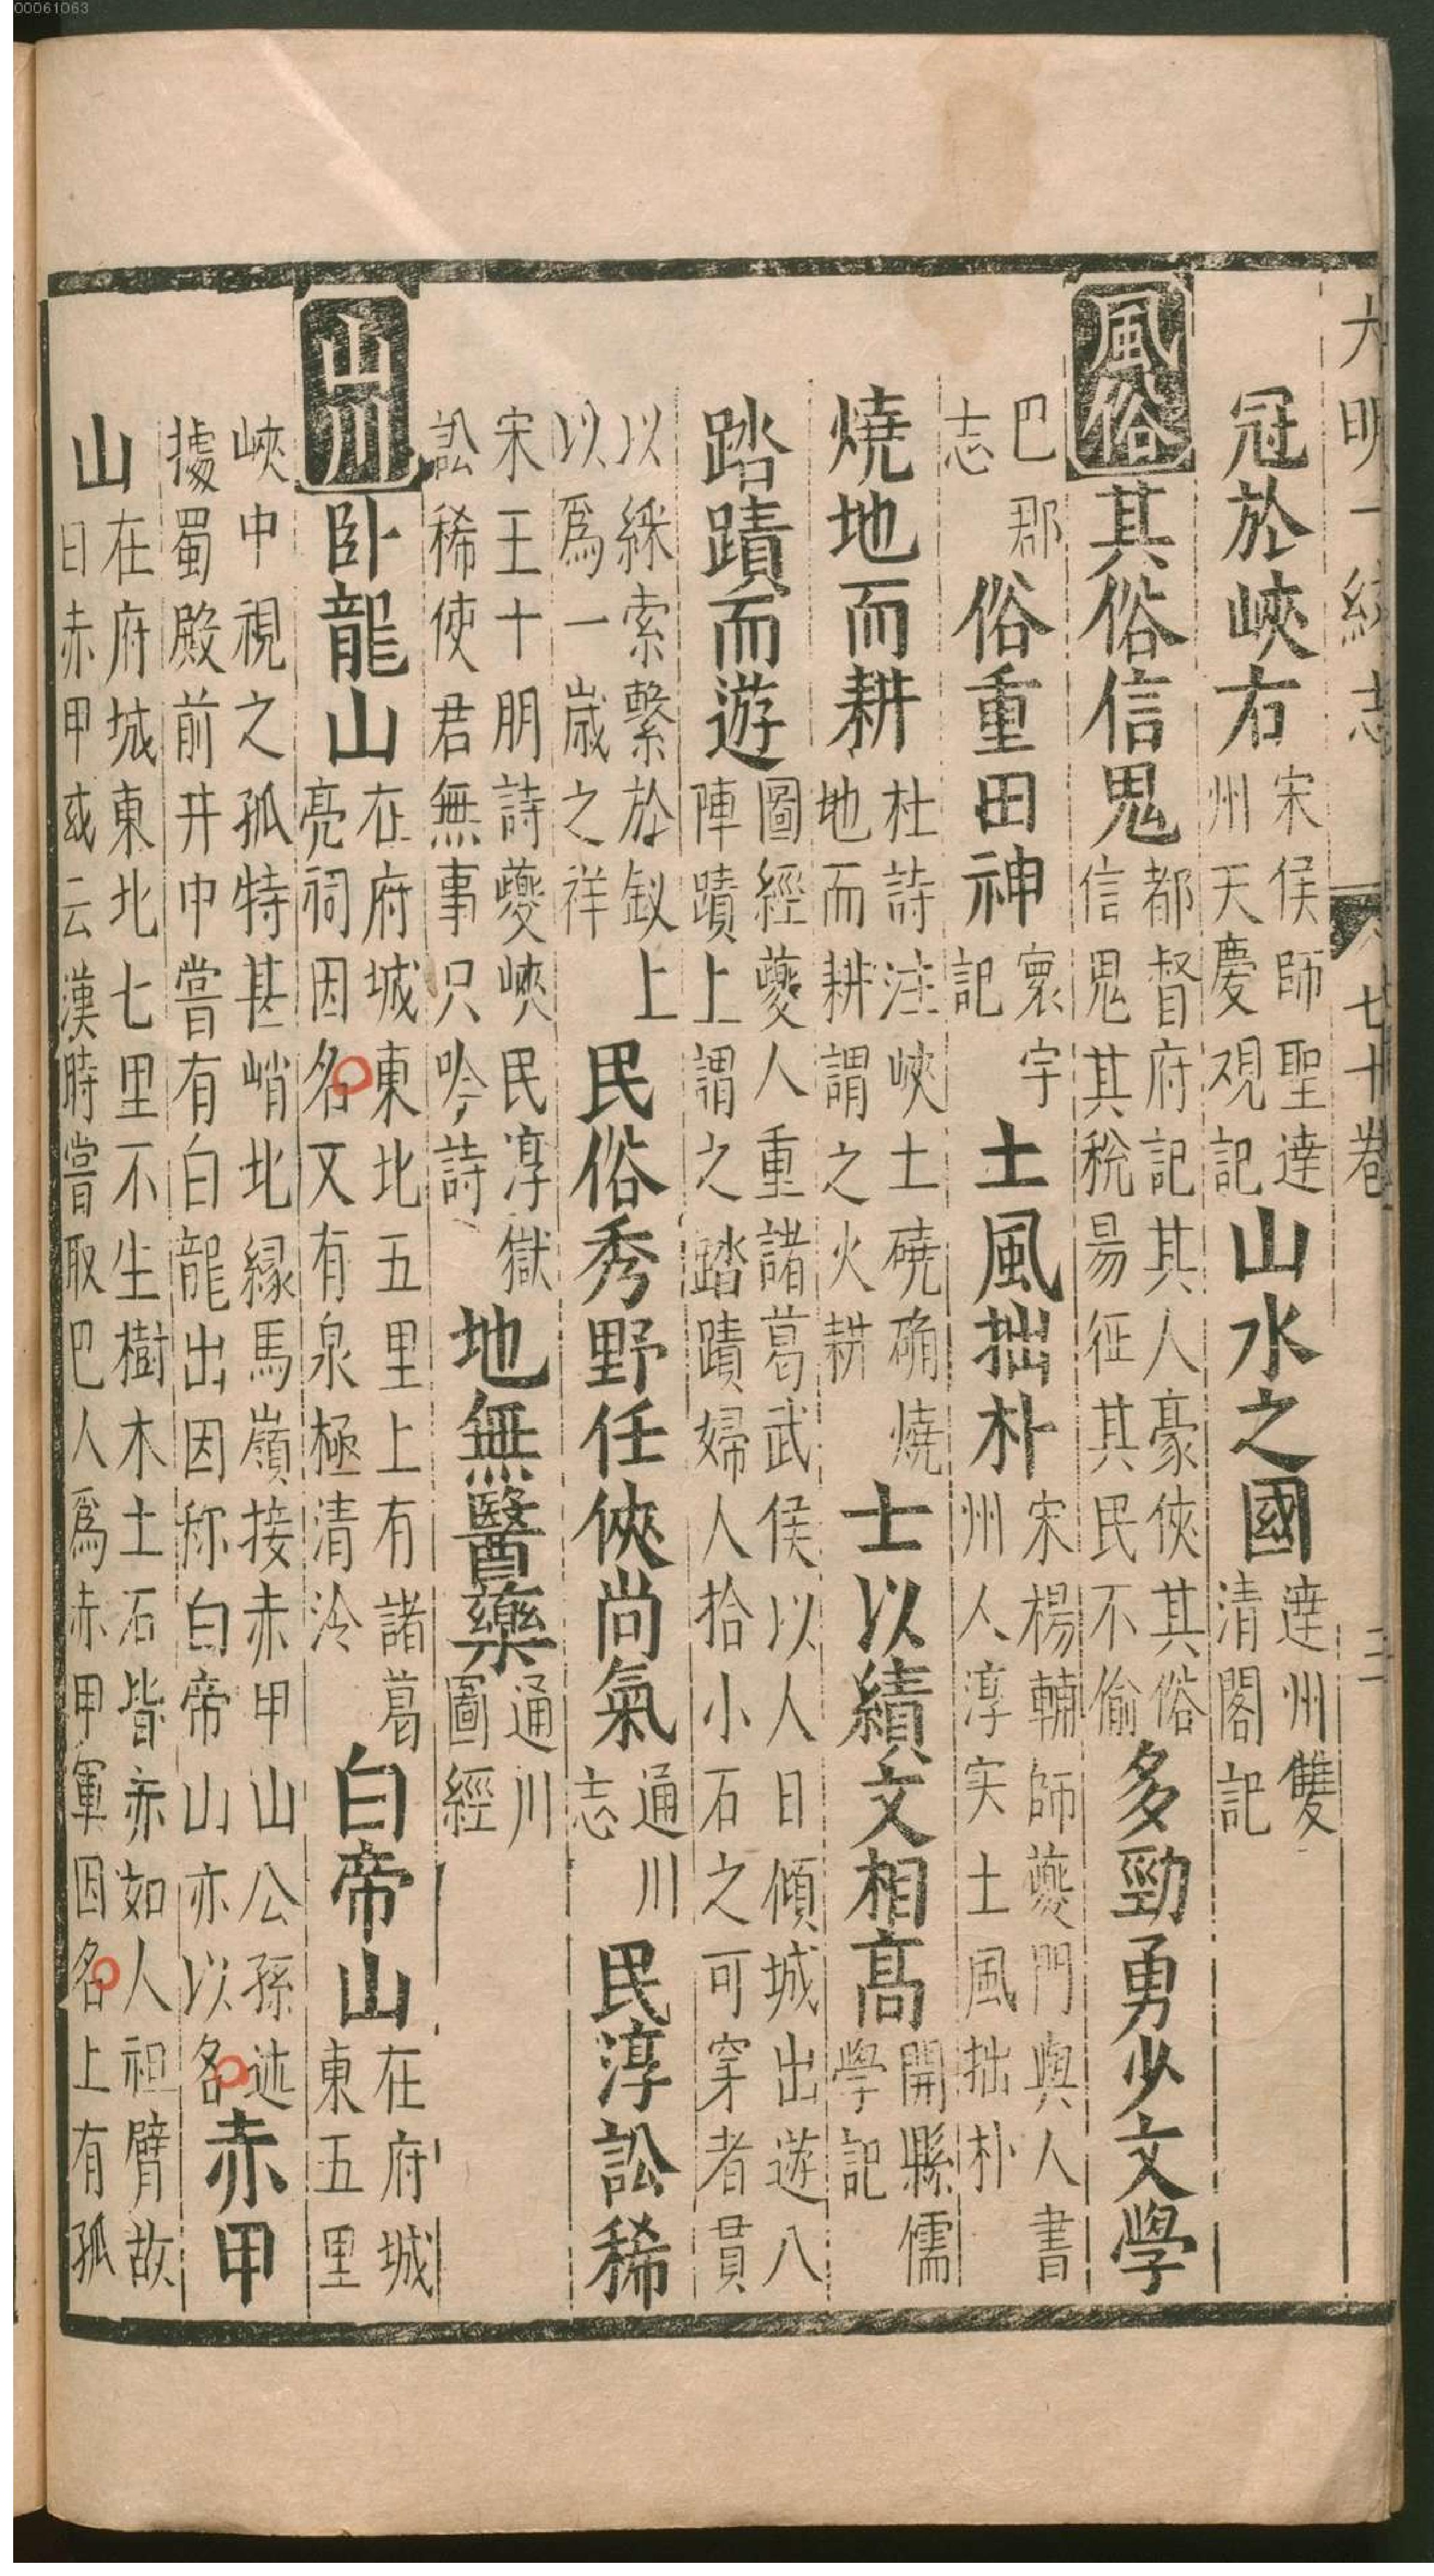 00061063
大明一統志 七十卷 三
冠於峽右 宋侯師聖達州天慶观記 山水之國 達州雙清閣記
風俗 其俗信鬼 都督府記其人豪俠其俗信鬼其稅易征其民不偷 多勁勇少文學
巴郡志 俗重田神 寰宇記 土風拙朴 宋楊輔師夔門與人書州人淳实土風拙朴
燒地而耕 杜詩注峽土磽确燒地而耕謂之火耕 士以績文相高 開縣儒學記
踏蹟而遊 圖經夔人重諸葛武侯以人日傾城出遊八陣蹟上謂之踏蹟婦人拾小石之可穿者貫
以綵索繫於釵上以爲一歲之祥 民俗秀野任俠尚氣 通川志 民淳訟稀
宋王十朋詩夔峽民淳獄訟稀使君無事只吟詩 地無醫藥 通川圖經
山川 卧龍山 在府城東北五里上有諸葛亮祠因名又有泉極清泠 白帝山 在府城東五里
峽中視之孤特甚峭北緣馬嶺接赤甲山公孫述據蜀殿前井中嘗有白龍出因称白帝山亦以名 赤甲
山 在府城東北七里不生樹木土石皆赤如人袒臂故曰赤甲或云漢時嘗取巴人爲赤甲軍因名上有孤